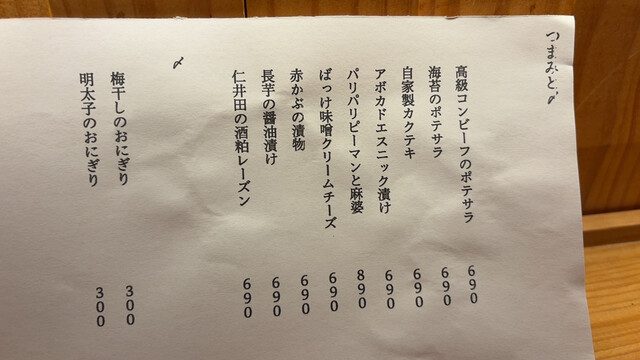 つまみど〆
高級コンビーフのポテサラ 690
海苔のポテサラ 690
自家製カクテキ 690
アボカドエスニック漬け 690
パリパリピーマンと麻婆 890
ばっけ味噌クリームチーズ 690
赤かぶの漬物 690
長芋の醤油漬け 690
仁井田の酒粕レーズン 690
〆
梅干しのおにぎり 300
明太子のおにぎり 300